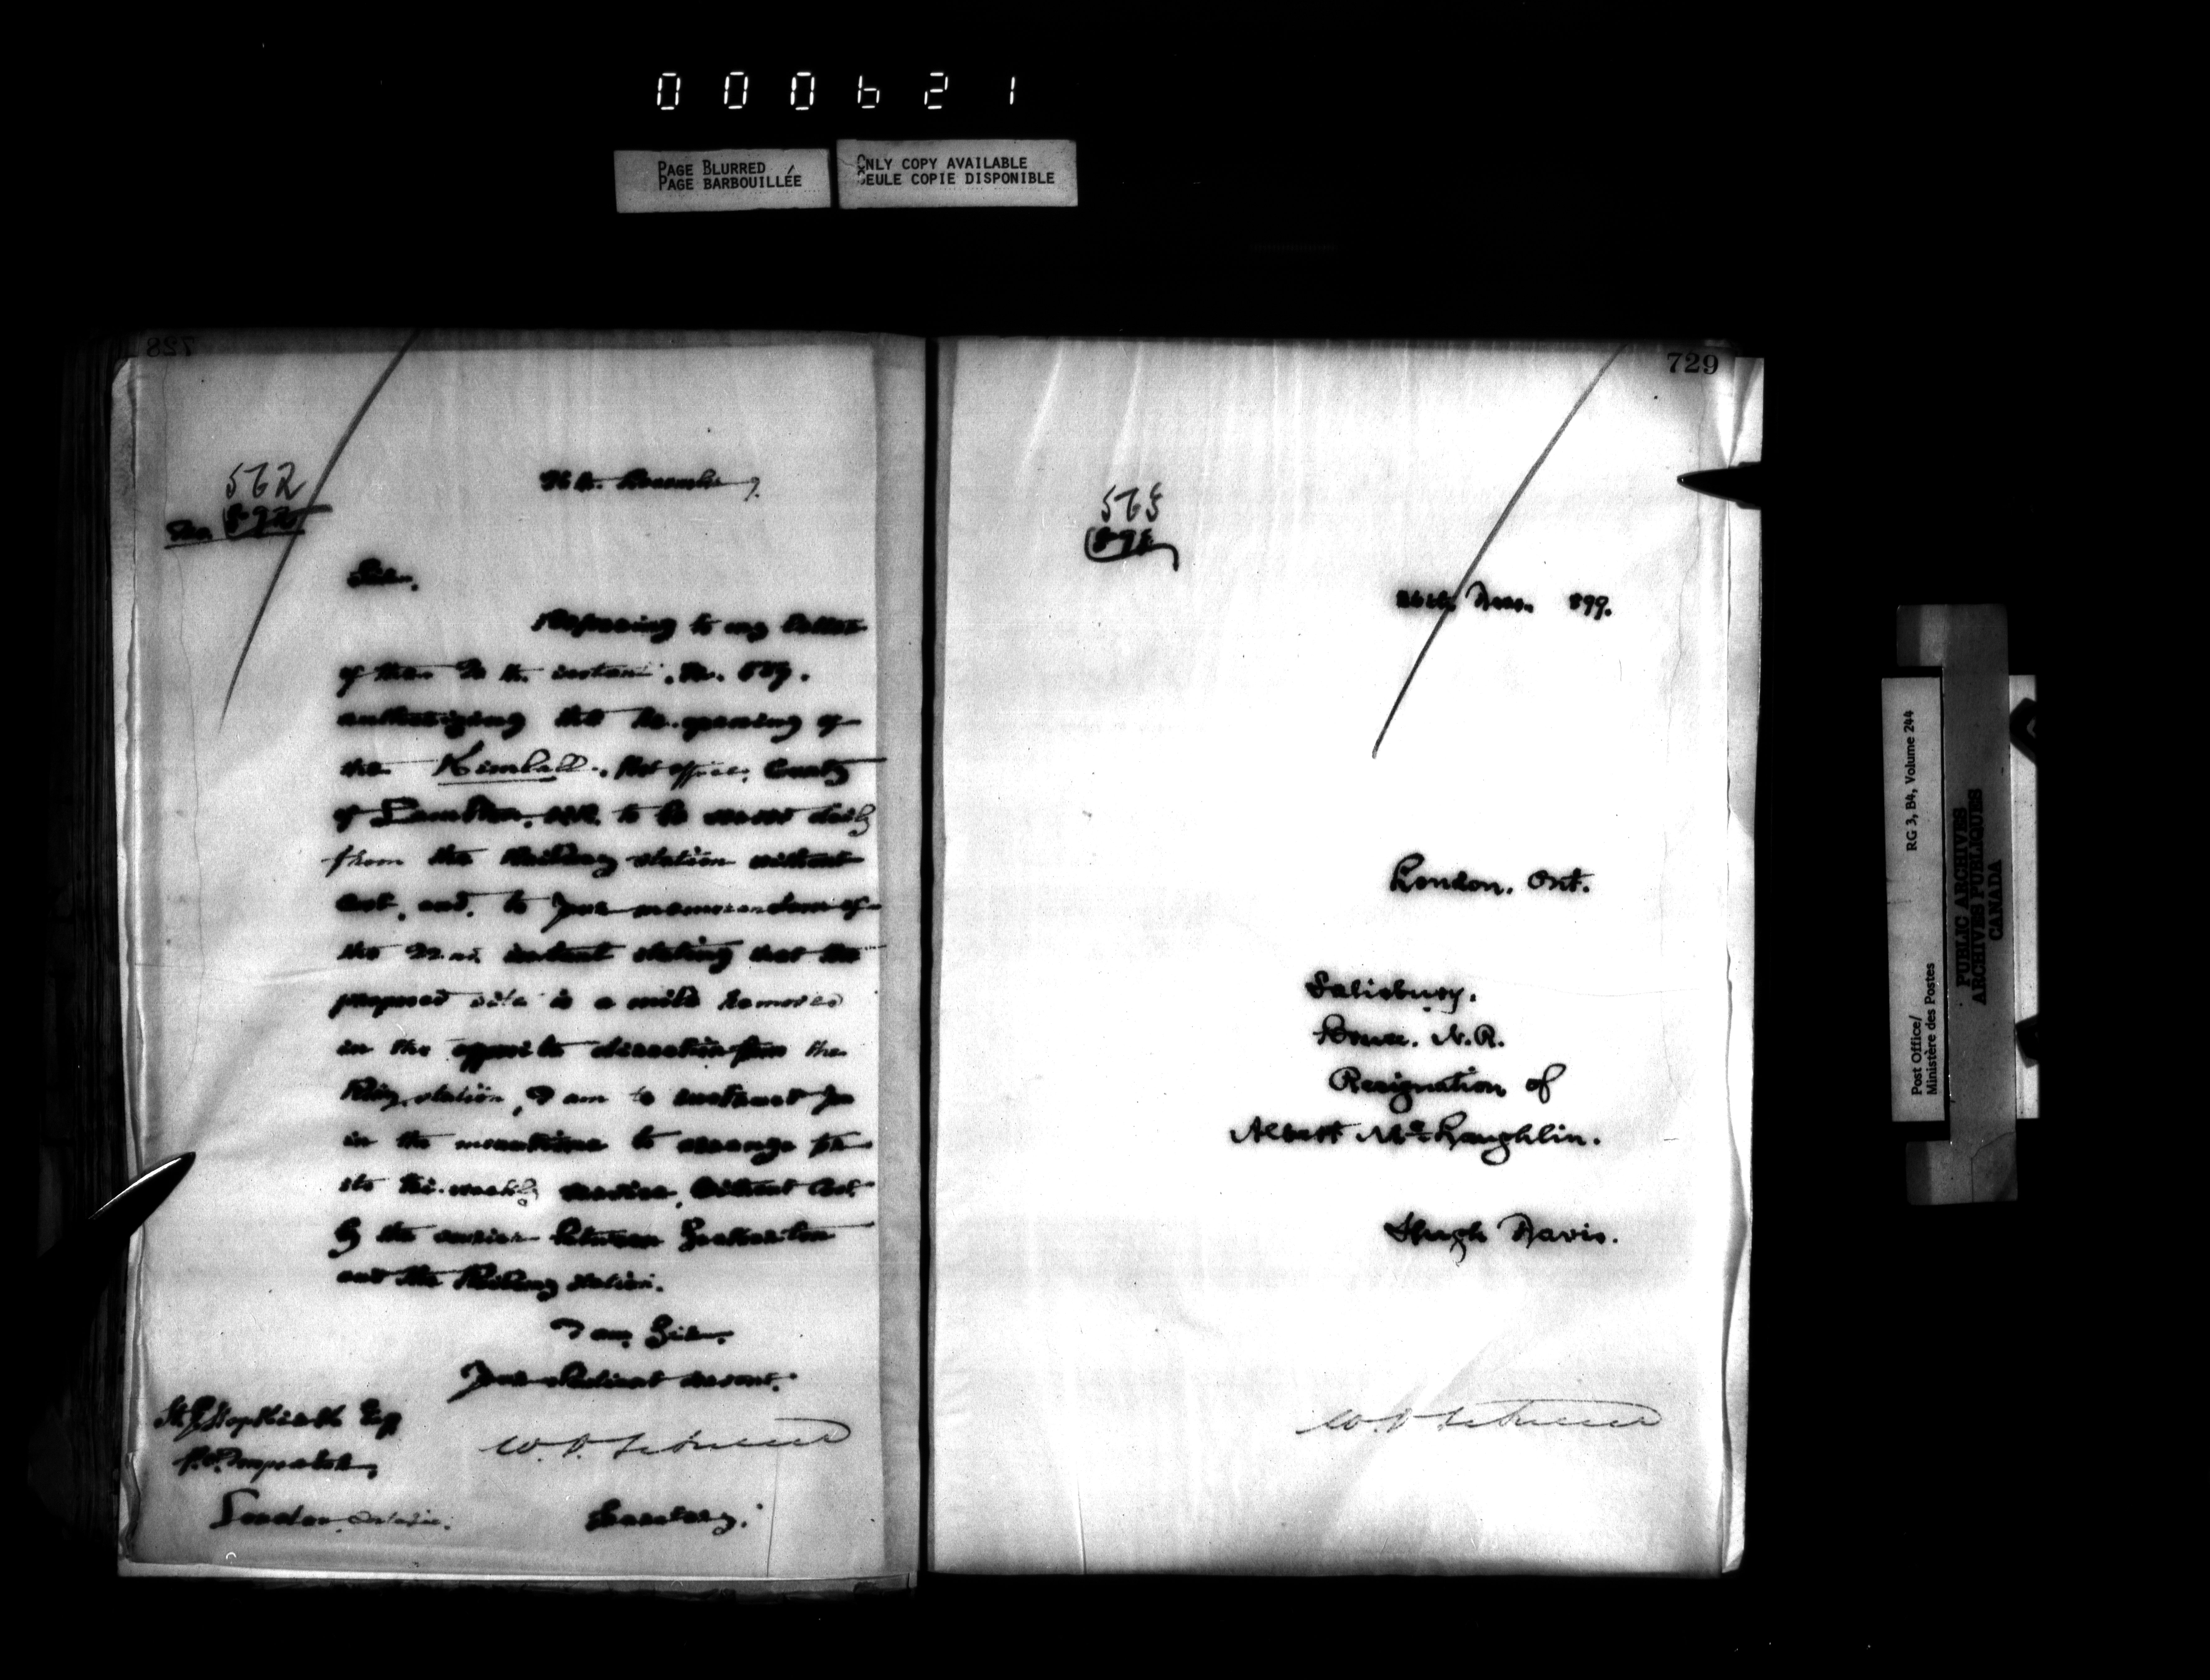 000621
PAGE BLURRED
PAGE BARBOUILLÉE
ONLY COPY AVAILABLE
SEULE COPIE DISPONIBLE
728
562
No.
November
Sir,
Referring to my letter
of the instant, No.
authorizing the re-opening of
the Kimball Post Office, County
of Lambton, to be served daily
from the Railway station without
cost, and to your memorandum of
the 22nd instant stating that the
proposed site is a mile removed
in the opposite direction from the
Rwy station, I am to instruct you
in the meantime to arrange for
its tri-weekly service, without cost
by the courier between
and the Railway station.
I am, Sir,
Your obedient servant,
Esqr
P.O. Inspector,
London, Ontario.
Secretary.
729
563
26th Nov. 899.
London. Ont.
Salisbury.
Bruce. N.R.
Resignation of
Albert McLaughlin.
Hugh Davis.
Post Office/
Ministère des Postes
RG 3, B4, Volume 244
PUBLIC ARCHIVES
ARCHIVES PUBLIQUES
CANADA